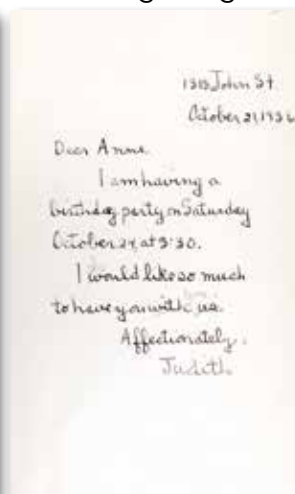 1313 John St
October 21, 1936
Dear Anne
I am having a
birthday party on Saturday
October 24, at 3:30.
I would like so much
to have you with us.
Affectionately,
Judith